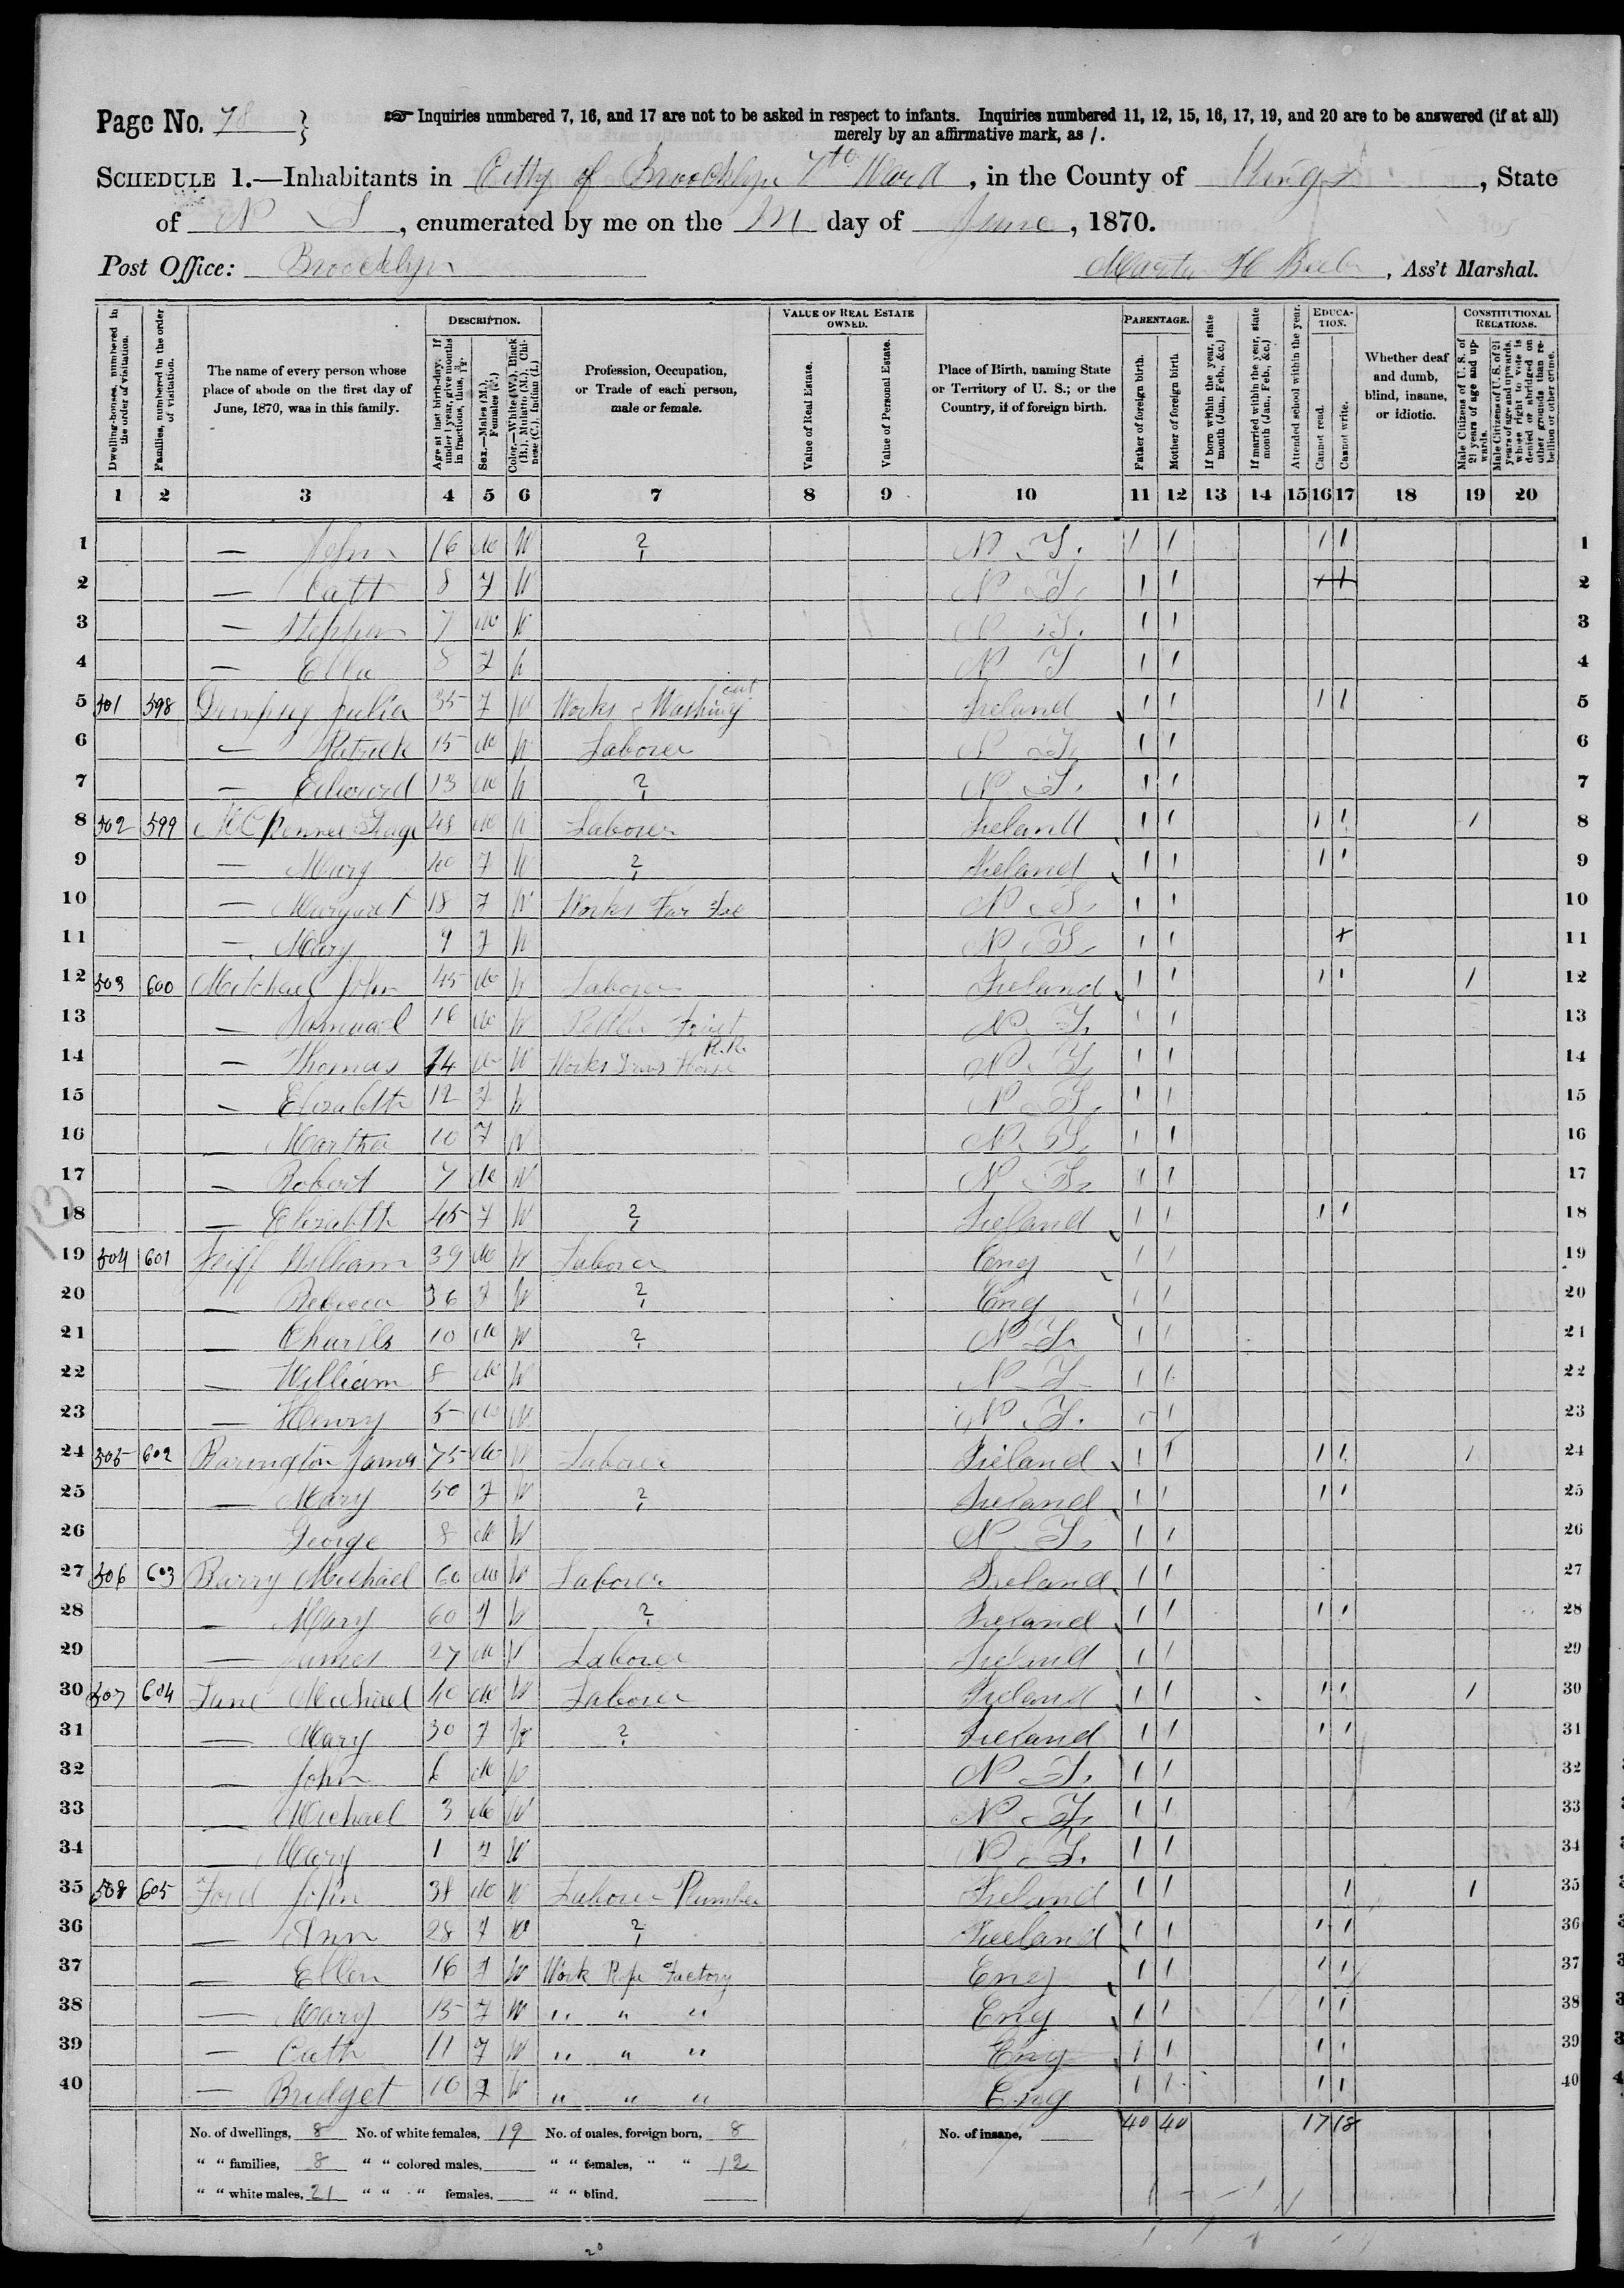 Page No. 78
☞ Inquiries numbered 7, 16, and 17 are not to be asked in respect to infants. Inquiries numbered 11, 12, 15, 16, 17, 19, and 20 are to be answered (if at all)
merely by an affirmative mark, as /.
SCHEDULE 1.—Inhabitants in City of Brooklyn 7th Ward, in the County of Kings, State
of N Y, enumerated by me on the day of June, 1870.
Post Office: Brooklyn , Ass't Marshal.
Dwelling-houses, numbered in the order of visitation.
Families, numbered in the order of visitation.
The name of every person whose place of abode on the first day of June, 1870, was in this family.
DESCRIPTION.
Age at last birth-day. If under 1 year, give months in fractions, thus, 3/12.
Sex.—Males (M.), Females (F.)
Color.—White (W.), Black (B.), Mulatto (M.), Chinese (C.), Indian (I.)
Profession, Occupation, or Trade of each person, male or female.
VALUE OF REAL ESTATE OWNED.
Value of Real Estate.
Value of Personal Estate.
Place of Birth, naming State or Territory of U. S.; or the Country, if of foreign birth.
PARENTAGE.
Father of foreign birth.
Mother of foreign birth.
If born within the year, state month (Jan., Feb., &c.)
If married within the year, state month (Jan., Feb., &c.)
Attended school within the year.
EDUCATION.
Cannot read.
Cannot write.
Whether deaf and dumb, blind, insane, or idiotic.
CONSTITUTIONAL RELATIONS.
Male Citizens of U. S. of 21 years of age and upwards.
Male Citizens of U. S. of 21 years of age and upwards, whose right to vote is denied or abridged on other grounds than rebellion or other crime.
1 2 3 4 5 6 7 8 9 10 11 12 13 14 15 16 17 18 19 20
1 — John 16 M W ? N Y. / / / / 1
2 — Cath 8 F W N Y. / / 2
3 — Stephen 7 M W N Y. / / 3
4 — Ella 8 F W N Y / / 4
5 501 598 Dempsey Julia 35 F W Works & Washing out Ireland / / / / 5
6 — Patrick 15 M W Laborer N Y. / / 6
7 — Edward 13 M W ? N Y. / / 7
8 502 599 48 M W Laborer Ireland / / / / / 8
9 — Mary 40 F W ? Ireland / / / / 9
10 — Margaret 18 F W Works N Y. / / 10
11 — Mary 9 F W N Y. / / + 11
12 503 600 Mitchael John 45 M W Laborer Ireland / / / / / 12
13 — Samuael 16 M W Pedler Fruit N Y. / / 13
14 — Thomas 14 M W Works R.R. N Y / / 14
15 — Elizabeth 12 F W N Y. / / 15
16 — Martha 10 F W N Y. / / 16
17 — Robert 7 M W N Y. / / 17
18 — Elizabeth 45 F W ? Ireland / / / / 18
19 504 601 William 39 M W Laborer Eng / / 19
20 — Rebecca 36 F W ? Eng / / 20
21 — Charles 10 M W ? N Y. / / 21
22 — William 8 M W N Y / / 22
23 — Henry 5 M W N Y. / / 23
24 505 602 Rarington James 75 M W Laborer Ireland / / / / / 24
25 — Mary 50 F W ? Ireland / / / / 25
26 George 8 M W N Y. / / 26
27 506 603 Barry Michael 60 M W Laborer Ireland / / 27
28 — Mary 60 F W ? Ireland / / / / 28
29 — James 27 M W Laborer Ireland / / 29
30 507 604 Michael 40 M W Laborer Ireland / / / / / 30
31 — Mary 30 F W ? Ireland / / / / 31
32 — John 6 M W N Y. / / 32
33 — Michael 3 M W N Y. / / 33
34 — Mary 1 F W N Y. / / 34
35 508 605 Ford John 38 M W Laborer Plumber Ireland / / / / 35
36 — Ann 28 F W ? Ireland / / / / 36
37 — Ellen 16 F W Work Rope Factory Eng / / / / 37
38 — Mary 15 F W " " " Eng / / / / 38
39 — Cath 11 F W " " " Eng / / / / 39
40 — Bridget 10 F W " " " Eng / / / / 40
No. of dwellings, 8 No. of white females, 19 No. of males, foreign born, 8 No. of insane, 40 40 17 18
" " families, 8 " " colored males, " " females, " " 12
" " white males, 21 " " " females, " " blind,